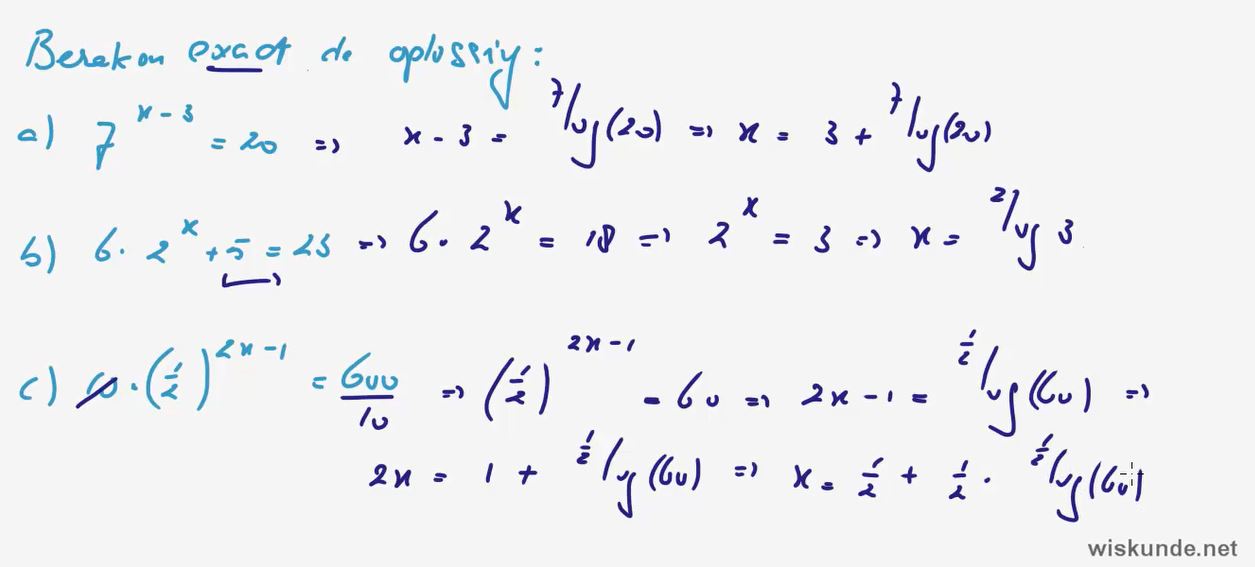 Bereken exact de oplossing:
a) 7^(x-3) = 20 => x - 3 = ⁷log(20) => x = 3 + ⁷log(20)
b) 6 · 2^x + 5 = 23 => 6 · 2^x = 18 => 2^x = 3 => x = ²log 3
c) 10 · (1/2)^(2x-1) = 600/10 => (1/2)^(2x-1) = 60 => 2x - 1 = ^(1/2)log(60) =>
2x = 1 + ^(1/2)log(60) => x = 1/2 + 1/2 · ^(1/2)log(60)
wiskunde.net